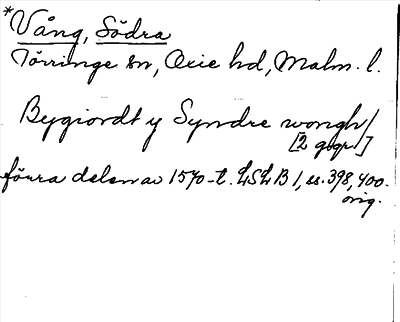 *Vång, Södra
Törringe sn, Oxie hd, Malm. l.
Bygiordt y Syndre wongh/
[2 ggr]
förra delen av 1570-t. LSLB 1, ss. 398, 400.
orig.